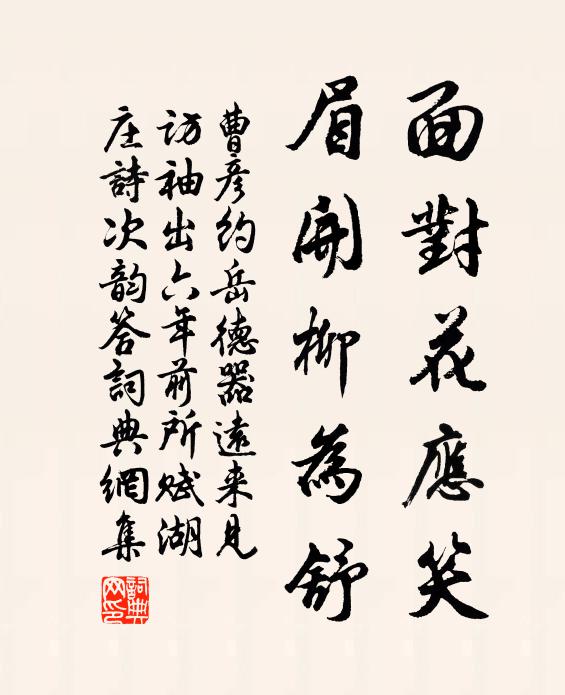 面對花應笑
眉開柳為舒
曹彦約岳德器遠来見
访袖出六年前所赋湖
庄詩次韵答詞典網集
詞典
网印